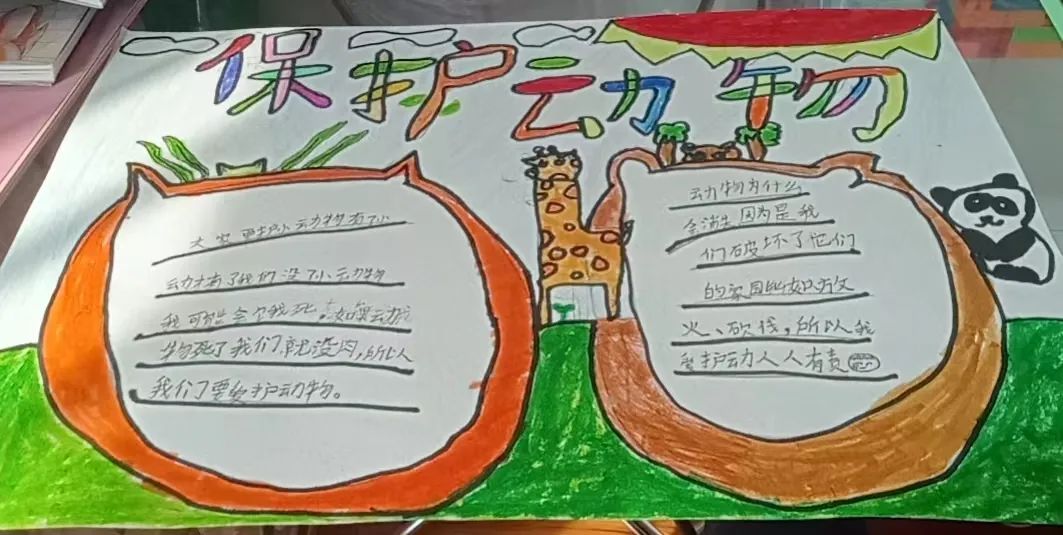 保护动物
大家要护小动物有小
动物有了我们没了小动物
我可能会尔我死。如果云力
物死了我们就没肉,所以
我们要爱护动物。
动物为什么
会消失因为是我
们破坏了他们
的家园比如放
火、砍伐,所以我
爱护动人人有责